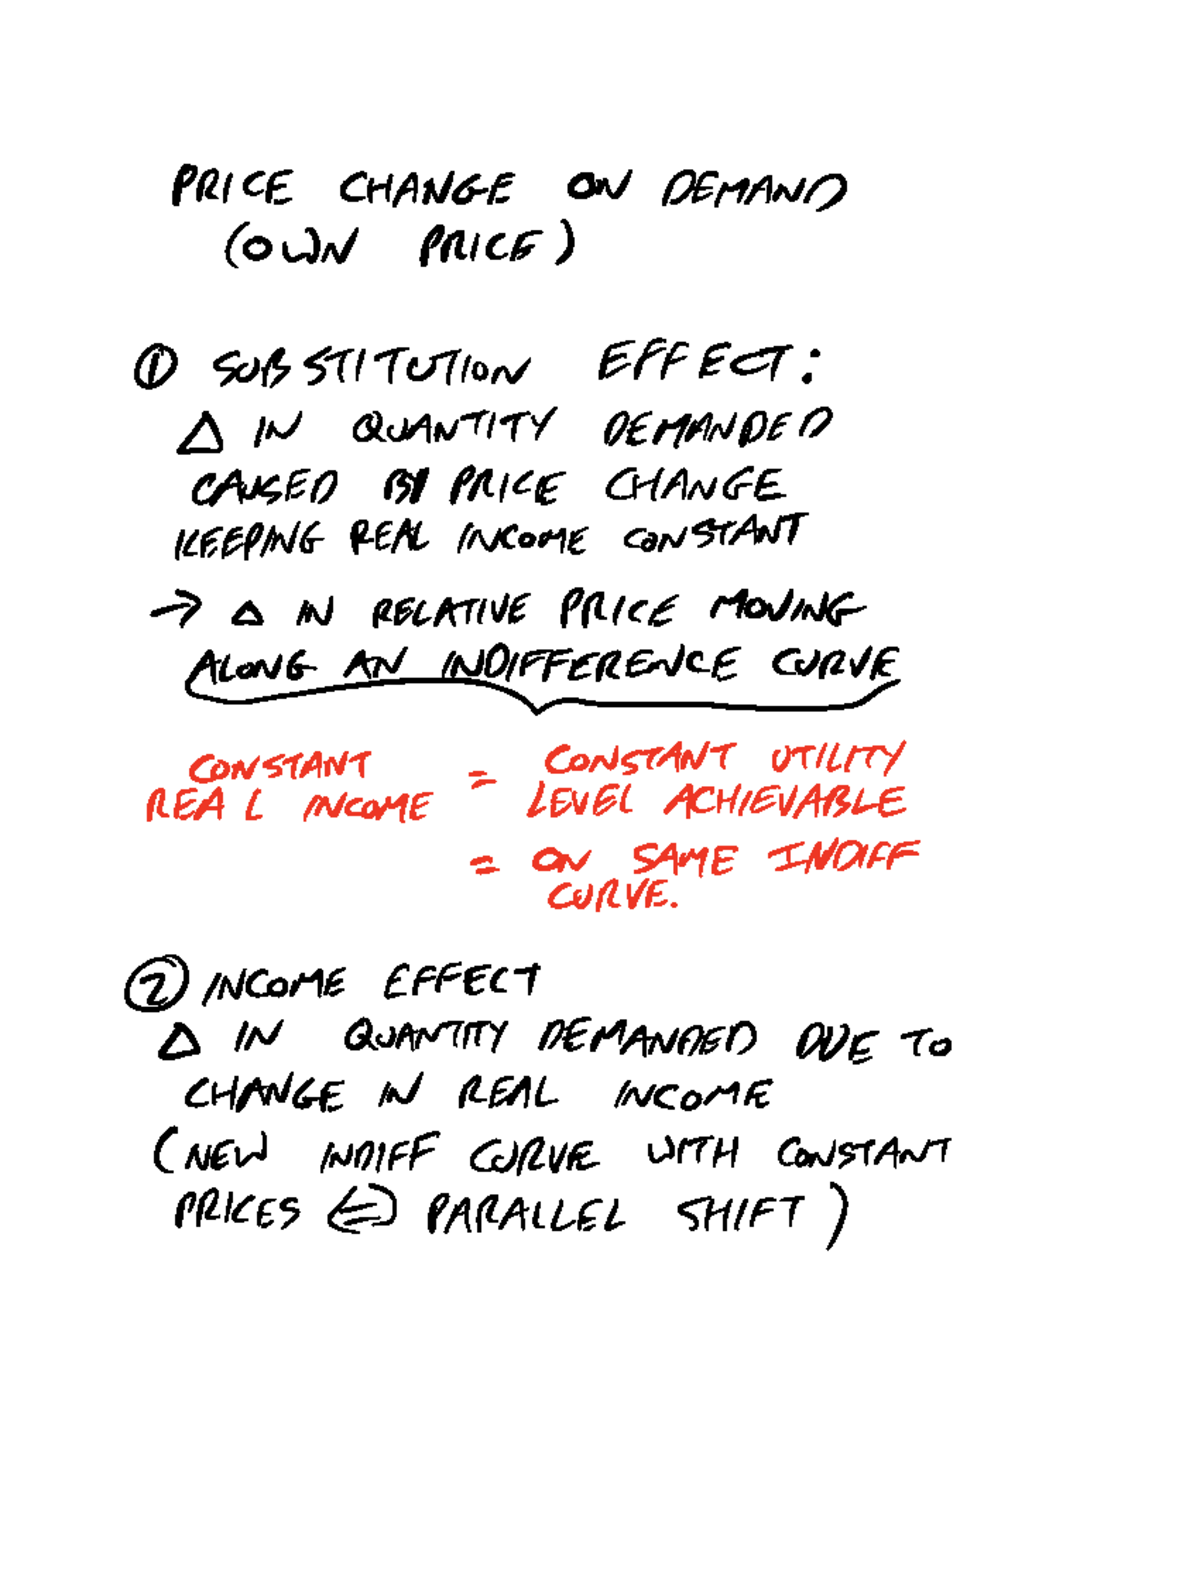 PRICE CHANGE ON DEMAND
(OWN PRICE)
① SUBSTITUTION EFFECT:
Δ IN QUANTITY DEMANDED
CAUSED BY PRICE CHANGE
KEEPING REAL INCOME CONSTANT
→ Δ IN RELATIVE PRICE MOVING
ALONG AN INDIFFERENCE CURVE
CONSTANT REAL INCOME = CONSTANT UTILITY
LEVEL ACHIEVABLE
= ON SAME INDIFF
CURVE.
② INCOME EFFECT
Δ IN QUANTITY DEMANDED DUE TO
CHANGE IN REAL INCOME
(NEW INDIFF CURVE WITH CONSTANT
PRICES ⇔ PARALLEL SHIFT)